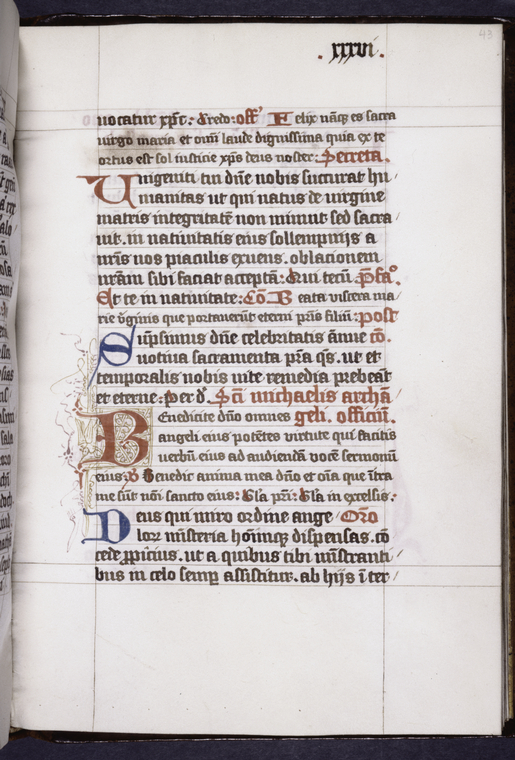 43
. xxxvi .
uocatur xp̄c : Credo : off' Felix nāq; es sacra
uirgo maria et om̄i laude dignissima quia ex te
ortus est sol iusticie xp̄s deus noster : Secreta .
Unigeniti tui dn̄e nobis succurat hu /
manitas ut qui natus de uirgine
matris integritatē non minuit sed sacra
uit . in natiuitatis eius sollempnijs a
nr̄is nos piaculis exuens . oblacionem
nr̄am sibi faciat acceptā : Qui tecū p̄fao .
Et te in natiuitate : Cō . Beata viscera ma /
rie v̓ginis que portauerūt eterni pr̄is filiū : post
Sūpsimus dn̄e celebritatis ānue cō .
uotiua sacramenta pr̄a qs̄ . ut et
temporalis nobis uite remedia prebeāt
et eterne : Per d . Sc̄i michaelis archā
Benedicite dn̄o omnes geli . officiū .
angeli eius potētes virtute qui facitis
uerbū eius ad audiendā vocē sermonū
eius : Benedic anima mea dn̄o et oīa que ītra
me sūt nōi sancto eius : Gl̄a pr̄i : Gl̄a in excelsis :
Deus qui miro ordine ange / Oro
lor misteria hoīmq; dispensas . cō
cede p̄picius . ut a quibus tibi mīstranti /
bus in celo semp̱ assistitur . ab hijs ī ter /